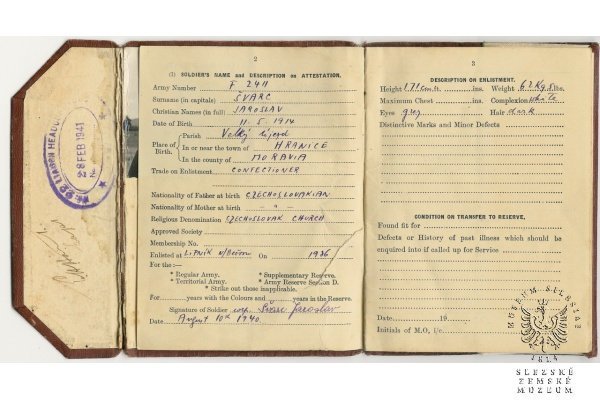 No. 22 LIAISON HEADQ
28 FEB 1941
2
(1) SOLDIER'S NAME and DESCRIPTION on ATTESTATION.
Army Number F 2411
Surname (in capitals) ŠVARC
Christian Names (in full) JAROSLAV
Date of Birth 11. 5. 1914
Place of Birth
Parish Velký Újezd
In or near the town of HRANICE
In the county of MORAVIA
Trade on Enlistment CONFECTIONER
Nationality of Father at birth CZECHOSLOVAKIAN
Nationality of Mother at birth " " "
Religious Denomination CZECHOSLOVAK CHURCH
Approved Society
Membership No.
Enlisted at LIPNÍK n/Bečvou On 1936
For the:—
* Regular Army. * Supplementary Reserve.
* Territorial Army. * Army Reserve Section D.
* Strike out those inapplicable.
For years with the Colours and years in the Reserve.
Signature of Soldier Švarc Jaroslav
Date August 10th 1940.
3
DESCRIPTION ON ENLISTMENT.
Height 171 cm ft. ins. Weight 67 Kg. lbs.
Maximum Chest ins. Complexion white
Eyes grey Hair dark
Distinctive Marks and Minor Defects
CONDITION ON TRANSFER TO RESERVE.
Found fit for
Defects or History of past illness which should be
enquired into if called up for Service
Date 19
Initials of M.O. i/c
MUSEUM SILESIAE
1814
SLEZSKÉ
ZEMSKÉ
MUZEUM